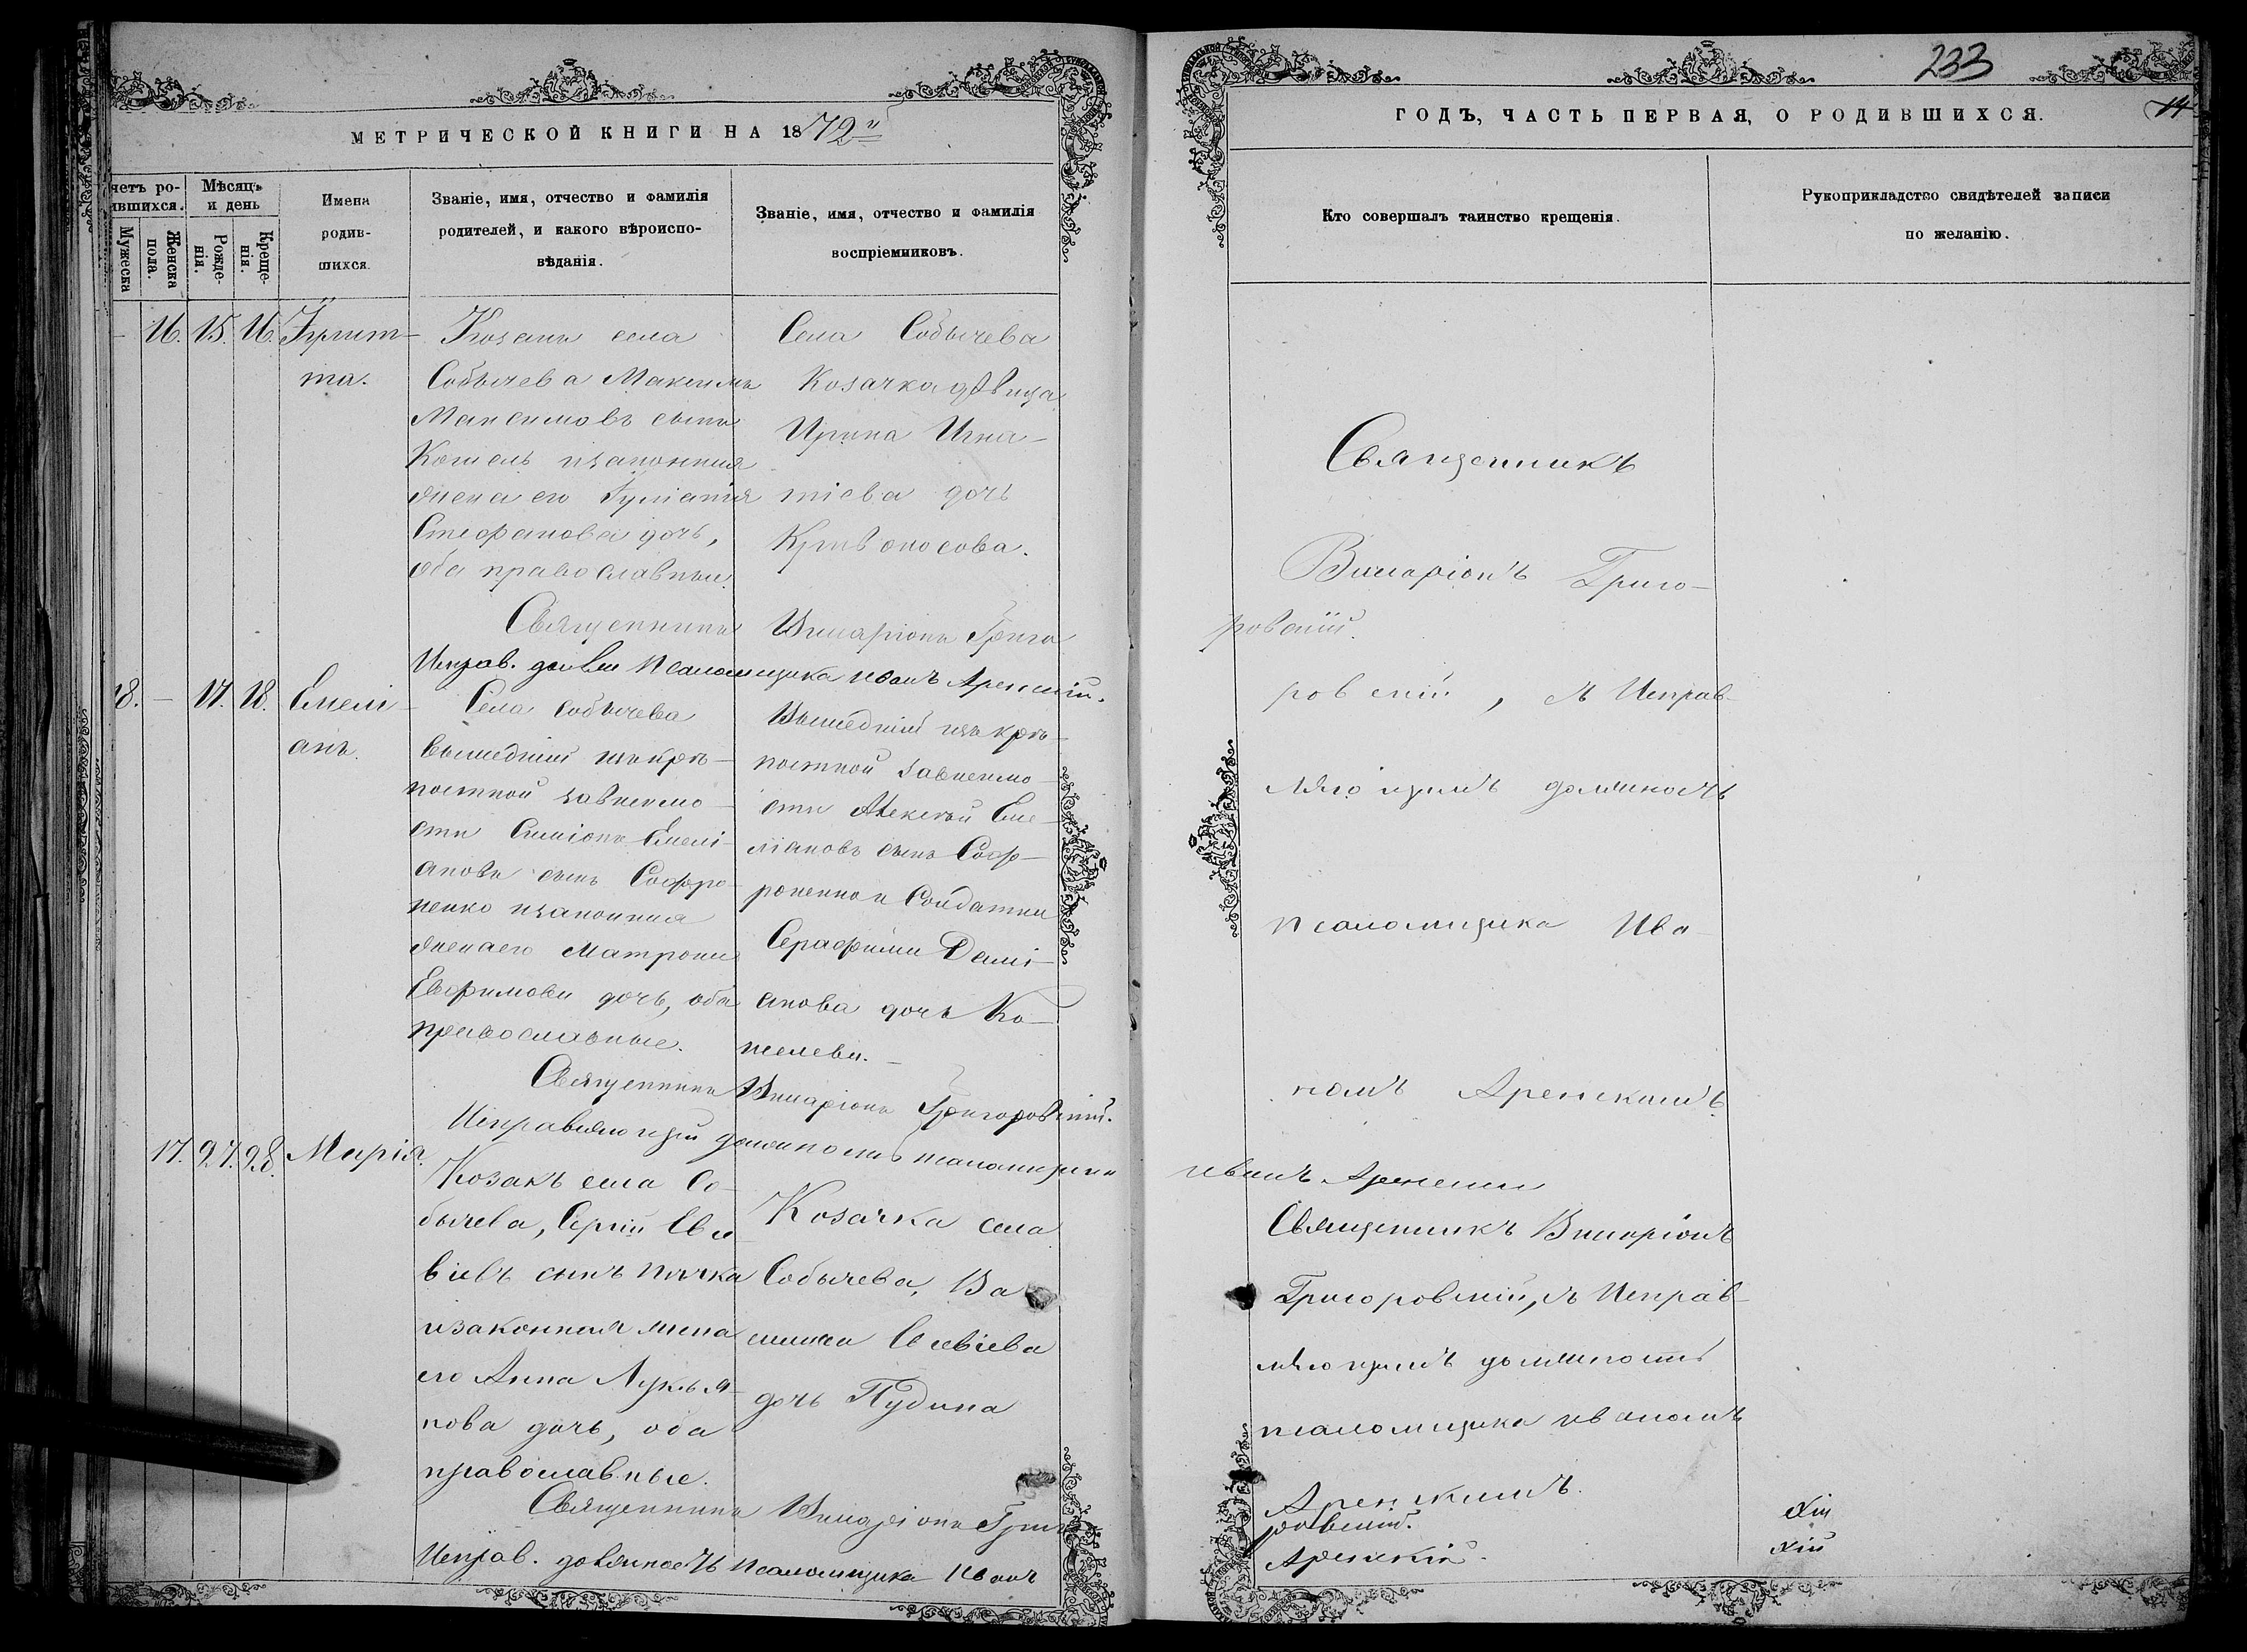 МЕТРИЧЕСКОЙ КНИГИ НА 1872й
четъ ро-
ившихся.
Мужеска
Женска
пола.
Мѣсяцъ
и день
Рожде-
нія.
Креще-
нія.
Имена
родив-
шихся.
Званіе, имя, отчество и фамилія
родителей, и какого вѣроиспо-
вѣданія.
Званіе, имя, отчество и фамилія
воспріемниковъ.
— 16. 15. 16.
Іулит-
та.
Козакъ села
Собычева Максимъ
Максимовъ сынъ
изаконная
жена его
Стефанова дочь,
оба православные.
Села Собычева
Козачка дѣвица
Ирина Игна-
тіева дочь
Кривоносова.
Священникъ Виссаріонъ Григо
Исправ. долж. псаломщика Иванъ Аренскій.
18. — 17. 18.
Емелі-
анъ.
Села Собычева
вышедшій изъ крѣ-
постной зависимо-
сти Симіонъ Емелі-
ановъ сынъ Софро-
ненко изаконная
жена его Матрона
Евфимова дочь, оба
православные.
Вышедшій изъ крѣ-
постной зависимо-
сти Алексѣй Еме-
ліановъ сынъ Соф-
роненко и Солдатка
Серафима Демі-
анова дочь Ко-
шелева.
Священникъ Виссаріонъ Григоровскій.
Исправляющій должность псаломщика
17. 27. 28.
Марія.
Козакъ села Со-
бычева, Сергій Евсе-
віевъ сынъ
изаконная жена
его Анна Лукья-
нова дочь, оба
православные.
Козачка села
Собычева, Ва
Евсевіева
дочь Пудина
Священникъ Виссаріонъ Григо
Исправ. должность псаломщика Иванъ
233
14
ГОДЪ, ЧАСТЬ ПЕРВАЯ, О РОДИВШИХСЯ.
Кто совершалъ таинство крещенія.
Рукоприкладство свидѣтелей записи
по желанію.
Священникъ
Виссаріонъ Григо-
ровскій.
ровскій, съ Исправ-
ляющимъ должность
псаломщика Ива-
номъ Аренскимъ
Иванъ Аренскій
Священникъ Виссаріонъ
Григоровскій, съ Исправ-
ляющимъ должность
псаломщика Иваномъ
Аренскимъ.
ровскій.
Аренскій.